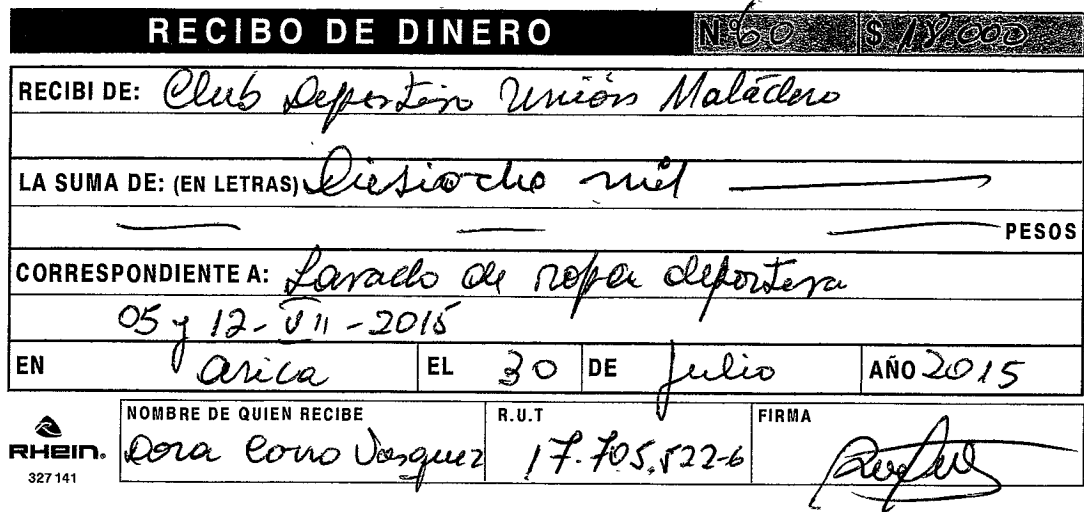 RECIBO DE DINERO Nº 60 $ 18.000
RECIBI DE: Club Deportivo Unión Matadero
LA SUMA DE: (EN LETRAS) Diesiocho mil
PESOS
CORRESPONDIENTE A: Lavado de ropa deportiva
05 y 12-VII-2015
EN Arica EL 30 DE Julio AÑO 2015
NOMBRE DE QUIEN RECIBE R.U.T FIRMA
Dora Corro Vasquez 17.705.522-6
RHEIN.
327141